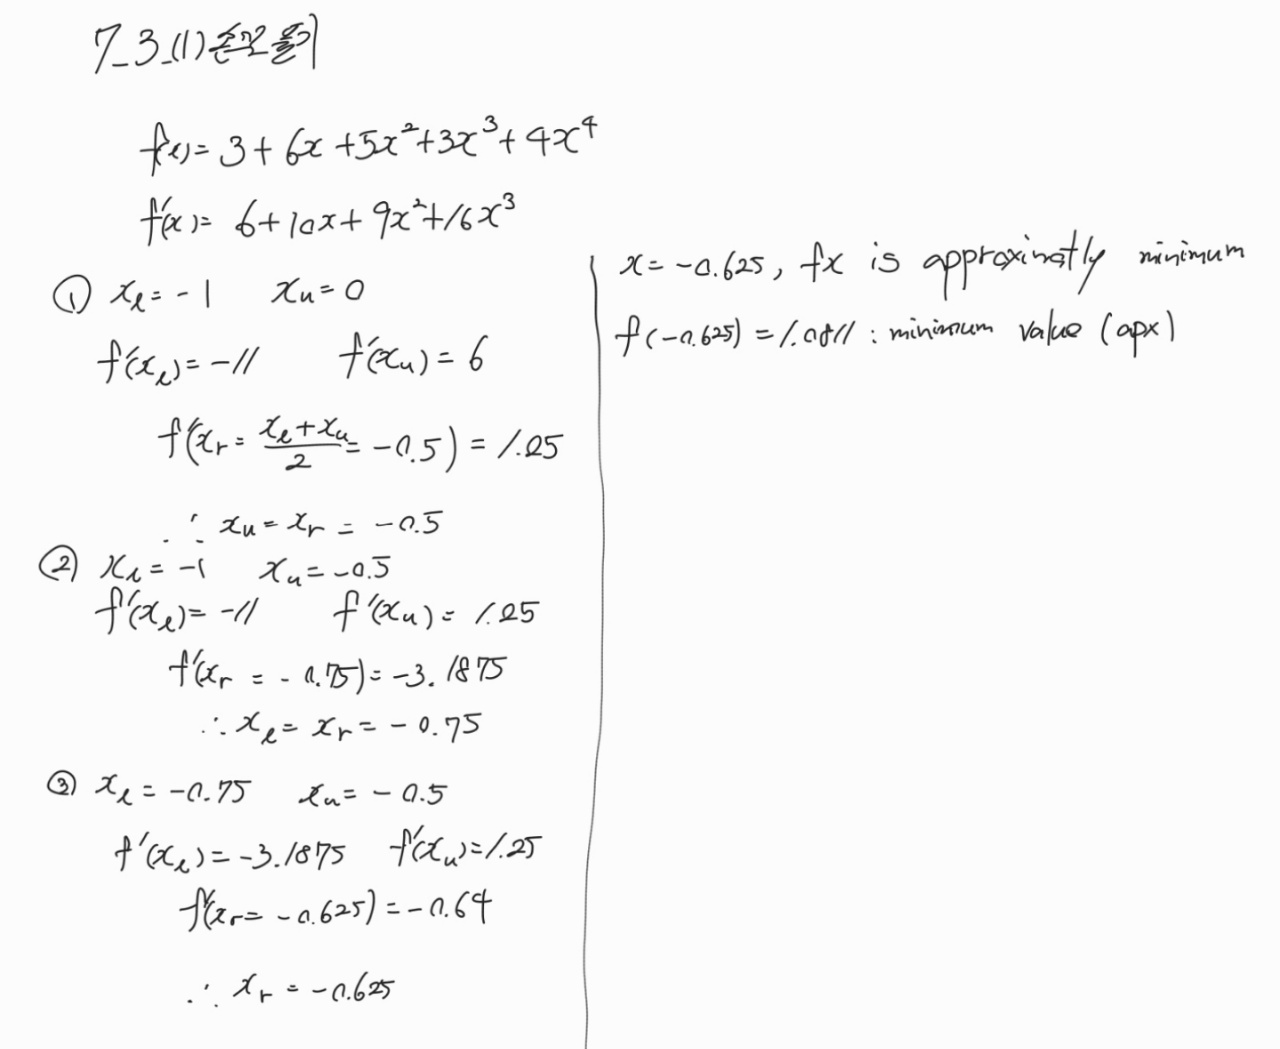 7_3_(1) 손으로 풀기
f(x) = 3 + 6x + 5x² + 3x³ + 4x⁴
f'(x) = 6 + 10x + 9x² + 16x³
① x_l = -1 x_u = 0
f'(x_l) = -11 f'(x_u) = 6
f'(x_r = (x_l + x_u)/2 = -0.5) = 1.25
∴ x_u = x_r = -0.5
② x_l = -1 x_u = -0.5
f'(x_l) = -11 f'(x_u) = 1.25
f'(x_r = -0.75) = -3.1875
∴ x_l = x_r = -0.75
③ x_l = -0.75 x_u = -0.5
f'(x_l) = -3.1875 f'(x_u) = 1.25
f'(x_r = -0.625) = -0.64
∴ x_r = -0.625
x = -0.625, fx is approximatly minimum
f(-0.625) = 1.0811 : minimum value (apx)